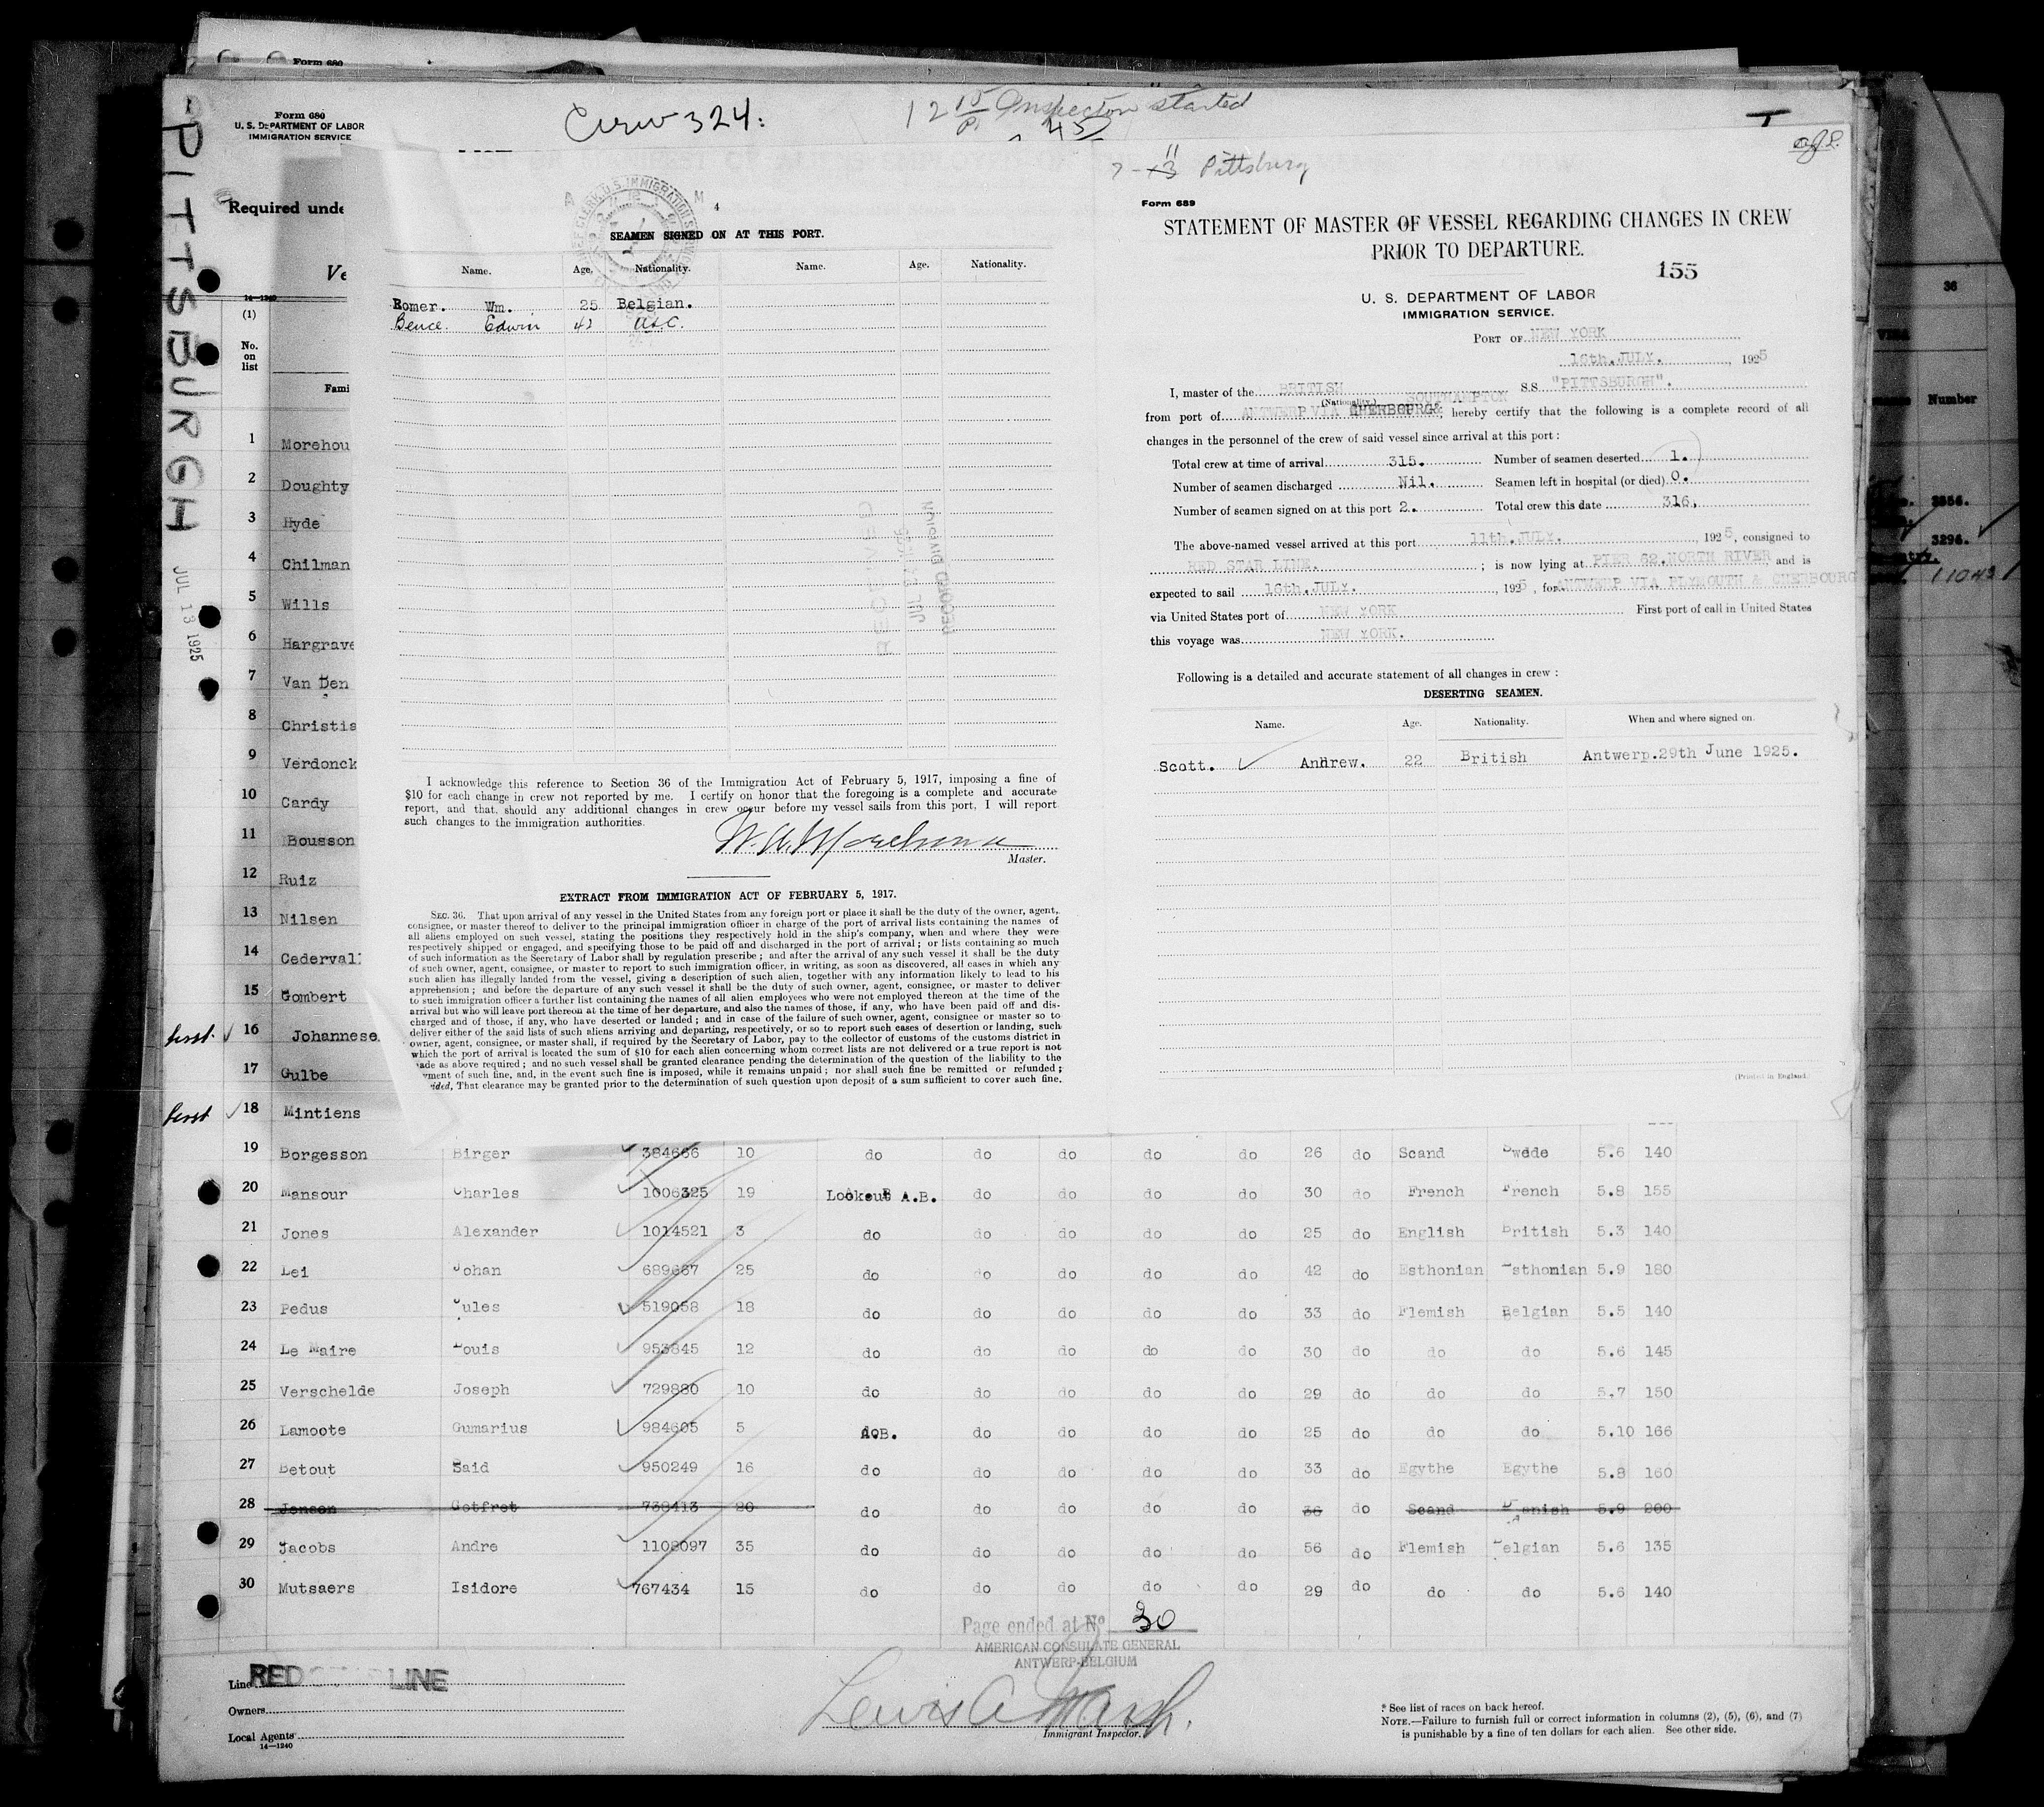 Form 680
Form 680
U. S. DEPARTMENT OF LABOR
IMMIGRATION SERVICE
Crew 324:
12 15 Inspection started
45
T
PITTSBURGH JUL 13 1925
Required unde
Ve
14-1240
(1)
No.
on
list
Fami
1 Morehou
2 Doughty
3 Hyde
4 Chilman
5 Wills
6 Hargrave
7 Van Den
8 Christis
9 Verdonck
10 Cardy
11 Bousson
12 Ruiz
13 Nilsen
14 Cederval
15 Gombert
16 Johannese
17 Gulbe
18 Mintiens
4
SEAMEN SIGNED ON AT THIS PORT.
Name. Age. Nationality. Name. Age. Nationality.
Romer. Wm. 25 Belgian.
Bence. Edwin 42 USC.
RECEIVED
JUL
RECORD DIVISION
I acknowledge this reference to Section 36 of the Immigration Act of February 5, 1917, imposing a fine of
$10 for each change in crew not reported by me. I certify on honor that the foregoing is a complete and accurate
report, and that, should any additional changes in crew occur before my vessel sails from this port, I will report
such changes to the immigration authorities.
Master.
EXTRACT FROM IMMIGRATION ACT OF FEBRUARY 5, 1917.
SEC. 36. That upon arrival of any vessel in the United States from any foreign port or place it shall be the duty of the owner, agent,
consignee, or master thereof to deliver to the principal immigration officer in charge of the port of arrival lists containing the names of
all aliens employed on such vessel, stating the positions they respectively hold in the ship's company, when and where they were
respectively shipped or engaged, and specifying those to be paid off and discharged in the port of arrival; or lists containing so much
of such information as the Secretary of Labor shall by regulation prescribe; and after the arrival of any such vessel it shall be the duty
of such owner, agent, consignee, or master to report to such immigration officer, in writing, as soon as discovered, all cases in which any
such alien has illegally landed from the vessel, giving a description of such alien, together with any information likely to lead to his
apprehension; and before the departure of any such vessel it shall be the duty of such owner, agent, consignee, or master to deliver
to such immigration officer a further list containing the names of all alien employees who were not employed thereon at the time of the
arrival but who will leave port thereon at the time of her departure, and also the names of those, if any, who have been paid off and dis-
charged and of those, if any, who have deserted or landed; and in case of the failure of such owner, agent, consignee or master so to
deliver either of the said lists of such aliens arriving and departing, respectively, or so to report such cases of desertion or landing, such
owner, agent, consignee, or master shall, if required by the Secretary of Labor, pay to the collector of customs of the customs district in
which the port of arrival is located the sum of $10 for each alien concerning whom correct lists are not delivered or a true report is not
ade as above required; and no such vessel shall be granted clearance pending the determination of the question of the liability to the
yment of such fine, and, in the event such fine is imposed, while it remains unpaid; nor shall such fine be remitted or refunded;
ided, That clearance may be granted prior to the determination of such question upon deposit of a sum sufficient to cover such fine.
11
7-13 Pittsburg
Form 689
STATEMENT OF MASTER OF VESSEL REGARDING CHANGES IN CREW
PRIOR TO DEPARTURE.
155
U. S. DEPARTMENT OF LABOR
IMMIGRATION SERVICE.
PORT OF NEW YORK
16th.JULY. , 1925
I, master of the BRITISH S.S. "PITTSBURGH".
(Nationality.) SOUTHAMPTON
from port of ANTWERP VIA CHERBOURG& hereby certify that the following is a complete record of all
changes in the personnel of the crew of said vessel since arrival at this port:
Total crew at time of arrival 315. Number of seamen deserted 1.
Number of seamen discharged Nil. Seamen left in hospital (or died) 0.
Number of seamen signed on at this port 2. Total crew this date 316.
The above-named vessel arrived at this port 11th.JULY. , 1925, consigned to
RED STAR LINE. ; is now lying at PIER 62.NORTH RIVER and is
expected to sail 16th.JULY. , 1925, for ANTWERP VIA PLYMOUTH & CHERBOURG
via United States port of NEW YORK First port of call in United States
this voyage was NEW YORK.
Following is a detailed and accurate statement of all changes in crew:
DESERTING SEAMEN.
Name. Age. Nationality. When and where signed on.
Scott. Andrew. 22 British Antwerp.29th June 1925.
(Printed in England.)
19 Borgesson Birger 384666 10 do do do do do 26 do Scand Swede 5.6 140
20 Mansour Charles 1006325 19 Lookout A.B. do do do do 30 do French French 5.8 155
21 Jones Alexander 1014521 3 do do do do do 25 do English British 5.3 140
22 Lei Johan 689667 25 do do do do do 42 do Esthonian Esthonian 5.9 180
23 Pedus Jules 519058 18 do do do do do 33 do Flemish Belgian 5.5 140
24 Le Maire Louis 953845 12 do do do do do 30 do do do 5.6 145
25 Verschelde Joseph 729880 10 do do do do do 29 do do do 5.7 150
26 Lamoote Gumarius 984605 5 A.B. do do do do 25 do do do 5.10 166
27 Betout Said 950249 16 do do do do do 33 do Egythe Egythe 5.8 160
28 Jensen Gotfret 738413 20 do do do do do 36 do Scand Danish 5.9 200
29 Jacobs Andre 1108097 35 do do do do do 56 do Flemish Belgian 5.6 135
30 Mutsaers Isidore 767434 15 do do do do do 29 do do do 5.6 140
Page ended at No 30
AMERICAN CONSULATE GENERAL
ANTWERP-BELGIUM
Line RED STAR LINE
Owners
Local Agents
14-1240
Immigrant Inspector.
* See list of races on back hereof.
NOTE.—Failure to furnish full or correct information in columns (2), (5), (6), and (7)
is punishable by a fine of ten dollars for each alien. See other side.
36
Number
3356.
3296.
11043